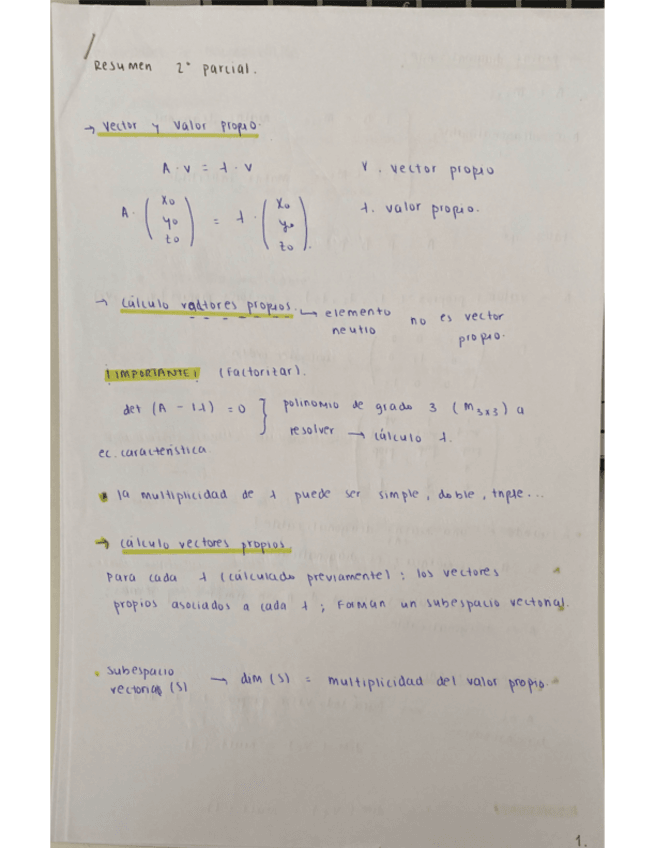 Resumen 2° parcial.
→ Vector y valor propio.
A · v = λ · v
v. vector propio
A · (x₀ y₀ z₀) = λ · (x₀ y₀ z₀).
λ. valor propio.
→ Cálculo valores propios. ↪ elemento neutro no es vector propio.
¡IMPORTANTE! (factorizar).
det (A - Iλ) = 0 } polinomio de grado 3 (M₃ₓ₃) a
resolver → cálculo λ.
ec. característica
• la multiplicidad de λ puede ser simple, doble, triple...
→ cálculo vectores propios
Para cada λ (cálculado previamente); los vectores
propios asociados a cada λ; forman un subespacio vectorial.
• subespacio
vectorial (S) → dim (S) = multiplicidad del valor propio.
1.